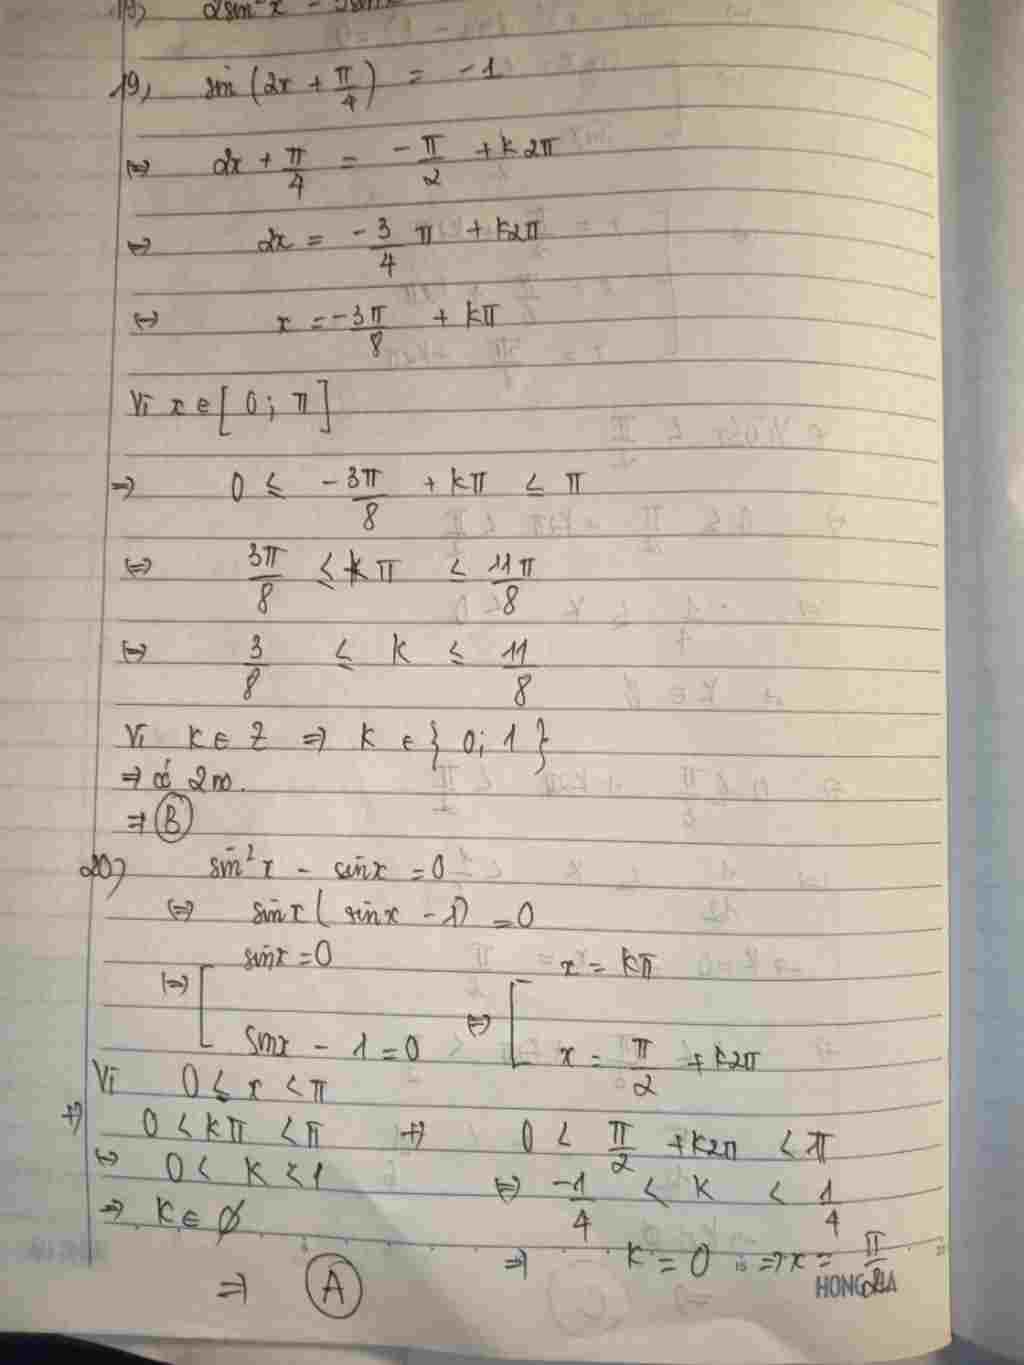 19) sin(2x + π/4) = -1
⇔ 2x + π/4 = -π/2 + k2π
⇔ 2x = -3/4 π + k2π
⇔ x = -3π/8 + kπ
Vì x ∈ [0; π]
⇒ 0 ≤ -3π/8 + kπ ≤ π
⇔ 3π/8 ≤ kπ ≤ 11π/8
⇔ 3/8 ≤ k ≤ 11/8
Vì k ∈ Z ⇒ k ∈ {0; 1}
⇒ có 2 no.
⇒ B
20) sin²x - sinx = 0
⇔ sinx(sinx - 1) = 0
⇔ [ sinx = 0 ⇔ [ x = kπ
sinx - 1 = 0 x = π/2 + k2π
Vì 0 ≤ x < π
+) 0 < kπ < π +) 0 < π/2 + k2π < π
⇔ 0 < k < 1 ⇔ -1/4 < k < 1/4
⇒ k ∈ ∅
⇒ k = 0 ⇒ x = π/2
⇒ A
HONG HA